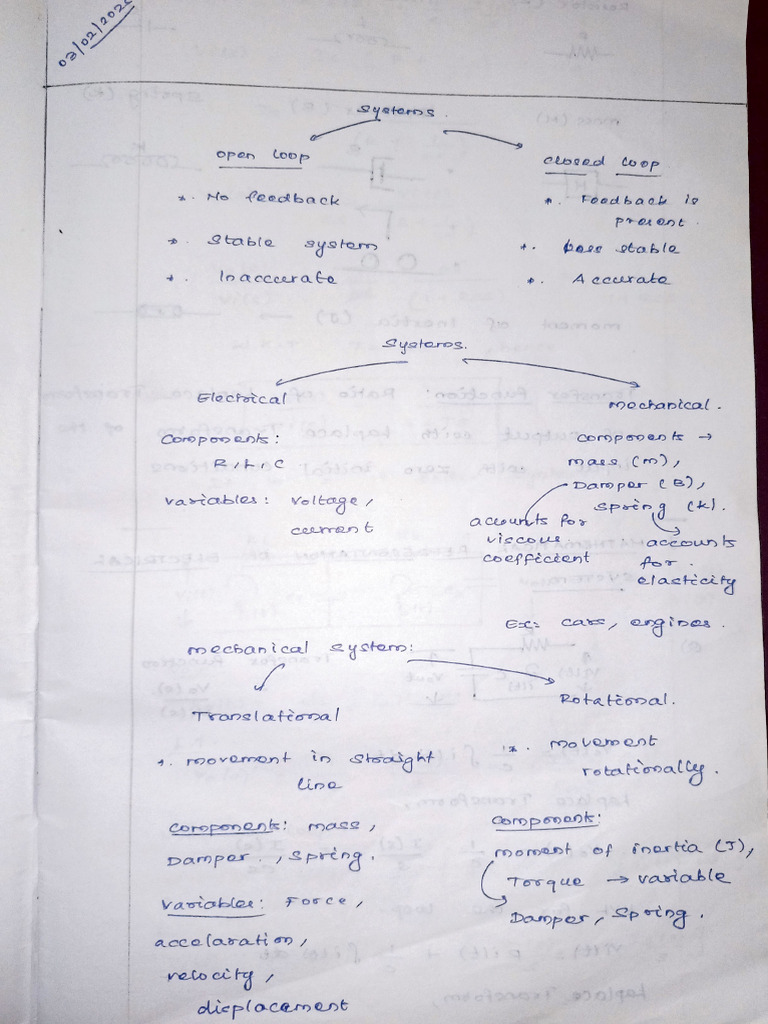 Systems.
open loop
*. No feedback
*. Stable system
*. Inaccurate
closed loop
*. Feedback is
present.
*. Less stable
*. Accurate
Systems.
Electrical
components:
R, L, C
variables: voltage,
current
mechanical.
components →
mass (m),
Damper (B),
spring (k).
accounts for
viscous
coefficient
accounts
for.
elasticity
Ex: cars, engines.
mechanical system:
Translational
*. movement in straight
line
components: mass,
Damper., spring.
variables: Force,
accelaration,
velocity,
displacement
Rotational.
*. movement
rotationally.
components:
moment of inertia (J),
Torque → variable
Damper, spring.